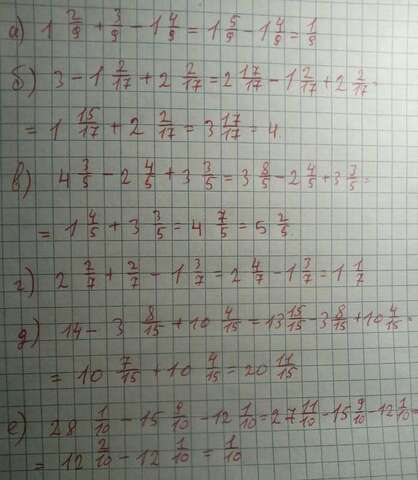 а) 1 2/9 + 3/9 - 1 4/9 = 1 5/9 - 1 4/9 = 1/9
б) 3 - 1 2/17 + 2 2/17 = 2 17/17 - 1 2/17 + 2 2/17 =
= 1 15/17 + 2 2/17 = 3 17/17 = 4.
в) 4 3/5 - 2 4/5 + 3 3/5 = 3 8/5 - 2 4/5 + 3 3/5 =
= 1 4/5 + 3 3/5 = 4 7/5 = 5 2/5.
г) 2 2/7 + 2/7 - 1 3/7 = 2 4/7 - 1 3/7 = 1 1/7
д) 14 - 3 8/15 + 10 4/15 = 13 15/15 - 3 8/15 + 10 4/15 =
= 10 7/15 + 10 4/15 = 20 11/15
е) 28 1/10 - 15 9/10 - 12 1/10 = 27 11/10 - 15 9/10 - 12 1/10 =
= 12 2/10 - 12 1/10 = 1/10